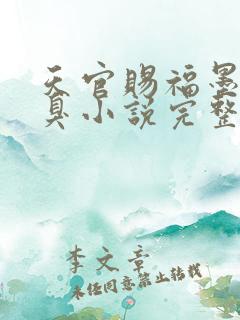 天官赐福墨
真小说完整
李文章
未经同意禁止转载